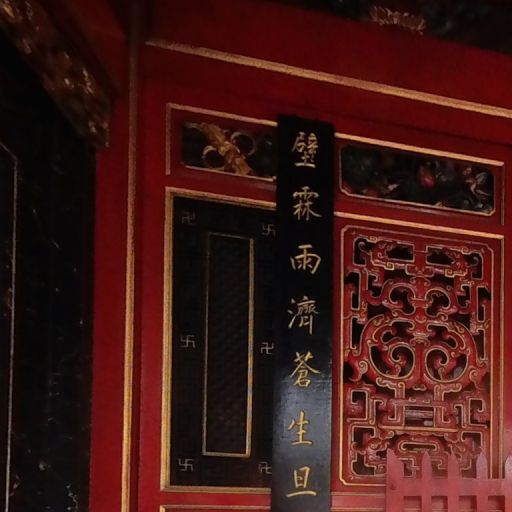 壁霖雨濟蒼生旦